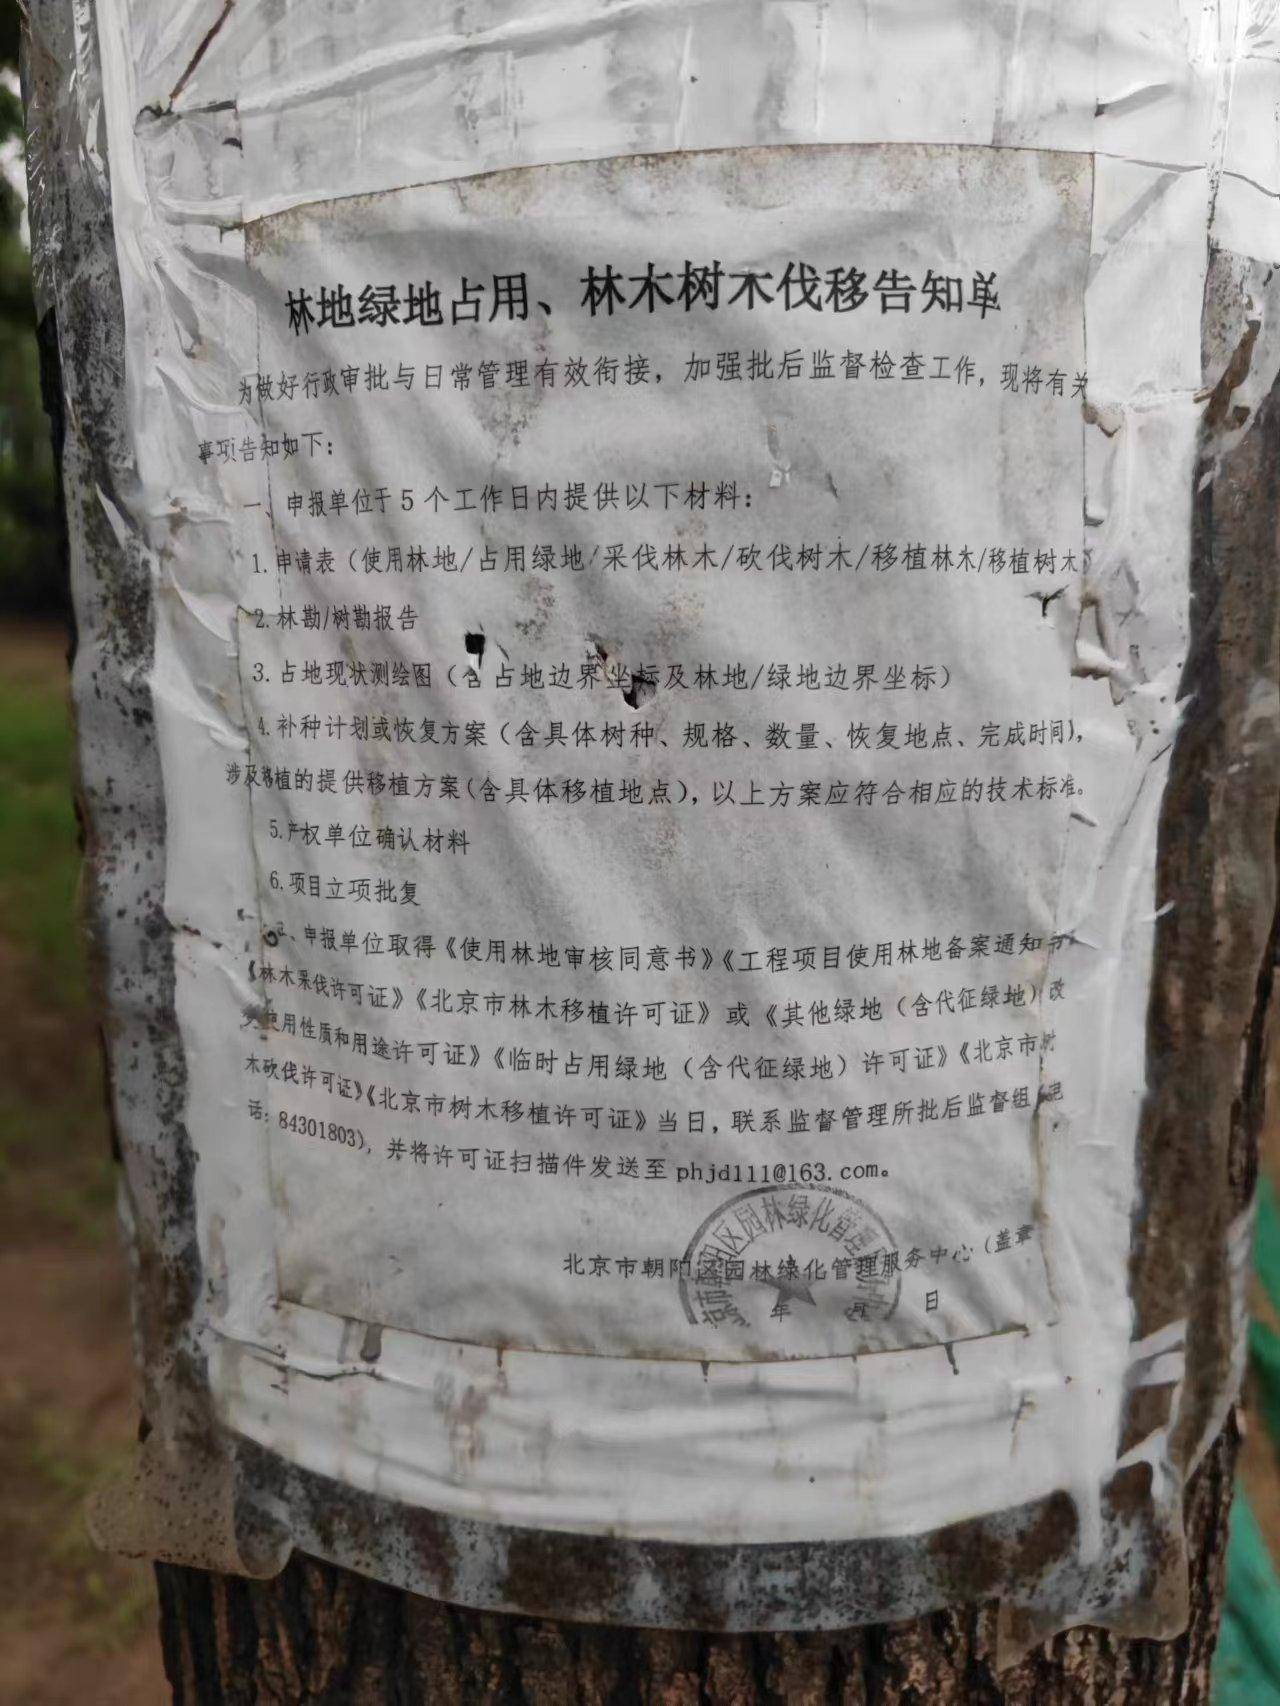 林地绿地占用、林木树木伐移告知单
为做好行政审批与日常管理有效衔接，加强批后监督检查工作，现将有关
事项告知如下：
一、申报单位于5个工作日内提供以下材料：
1.申请表（使用林地/占用绿地/采伐林木/砍伐树木/移植林木/移植树木）
2.林勘/树勘报告
3.占地现状测绘图（含占地边界坐标及林地/绿地边界坐标）
4.补种计划或恢复方案（含具体树种、规格、数量、恢复地点、完成时间），
涉及移植的提供移植方案（含具体移植地点），以上方案应符合相应的技术标准。
5.产权单位确认材料
6.项目立项批复
二、申报单位取得《使用林地审核同意书》《工程项目使用林地备案通知书》
《林木采伐许可证》《北京市林木移植许可证》或《其他绿地（含代征绿地）改
变使用性质和用途许可证》《临时占用绿地（含代征绿地）许可证》《北京市树
木砍伐许可证》《北京市树木移植许可证》当日，联系监督管理所批后监督组（电
话：84301803），并将许可证扫描件发送至phjd111@163.com。
北京市朝阳区园林绿化管理服务中心（盖章
年 月 日
京市朝阳区园林绿化管理